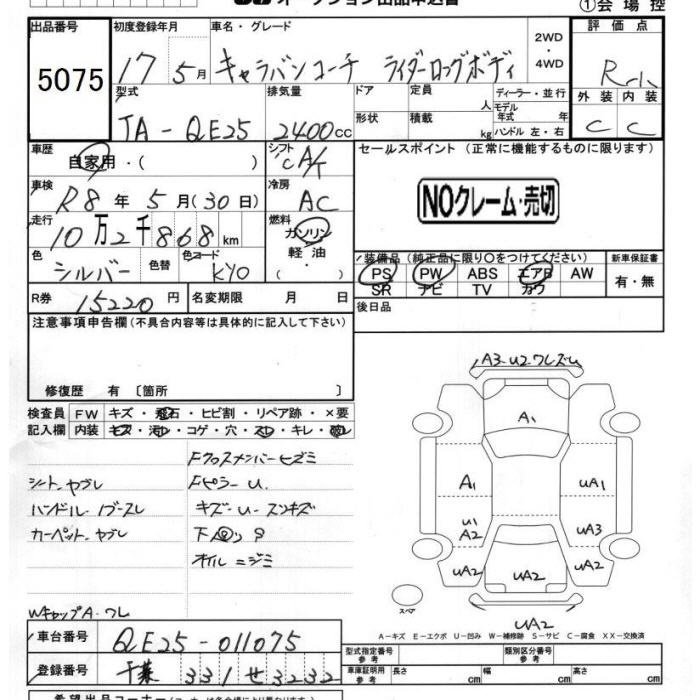 オークション出品申込書
①会場控
出品番号 初度登録年月 車名・グレード 2WD・4WD 評価点
5075 17 5月 キャラバンコーチ ライダーロングボディ
型式 排気量 ドア 定員 人 ディーラー・並行 外装 内装
形状 積載 kg モデル年式 年 ハンドル 左・右
TA-QE25 2400cc C C
車歴 自家用・( ) シフト CA/T セールスポイント (正常に機能するものに限ります)
車検 R8年 5月(30日) 冷房 AC NOクレーム・売切
走行 10万2千868km 燃料 ガソリン・軽油・( )
色 シルバー 色替 色コード KY0
装備品(純正品に限り○をつけてください) 新車保証書
PS PW ABS エアB AW 有・無
SR ナビ TV カワ
R券 15220円 名変期限 月 日 後日品
注意事項申告欄(不具合内容等は具体的に記入して下さい)
修復歴 有 〔箇所 〕
検査員 FW キズ・飛石・ヒビ割・リペア跡・×要
記入欄 内装 キズ・汚レ・コゲ・穴・スレ・キレ・破レ
Fクロスメンバーヒズミ
シートヤブレ FピラーU.
ハンドル・
キズ-U-スリキズ
カーペットヤブレ
オイルニジミ
WキャップA.ワレ
A3.U2ワレズレ
A1
A1 UA1
U1
A2 UA3
UA2 UA2 UA2
スペア
UA2
A-キズ E-エクボ U-凹み W-補修跡 S-サビ C-腐食 XX-交換済
車台番号 QE25-011075
型式指定番号 参考 類別区分番号 参考
登録番号 千葉 331 せ 3232
車庫証明用 参考 長さ cm 幅 cm 高さ cm